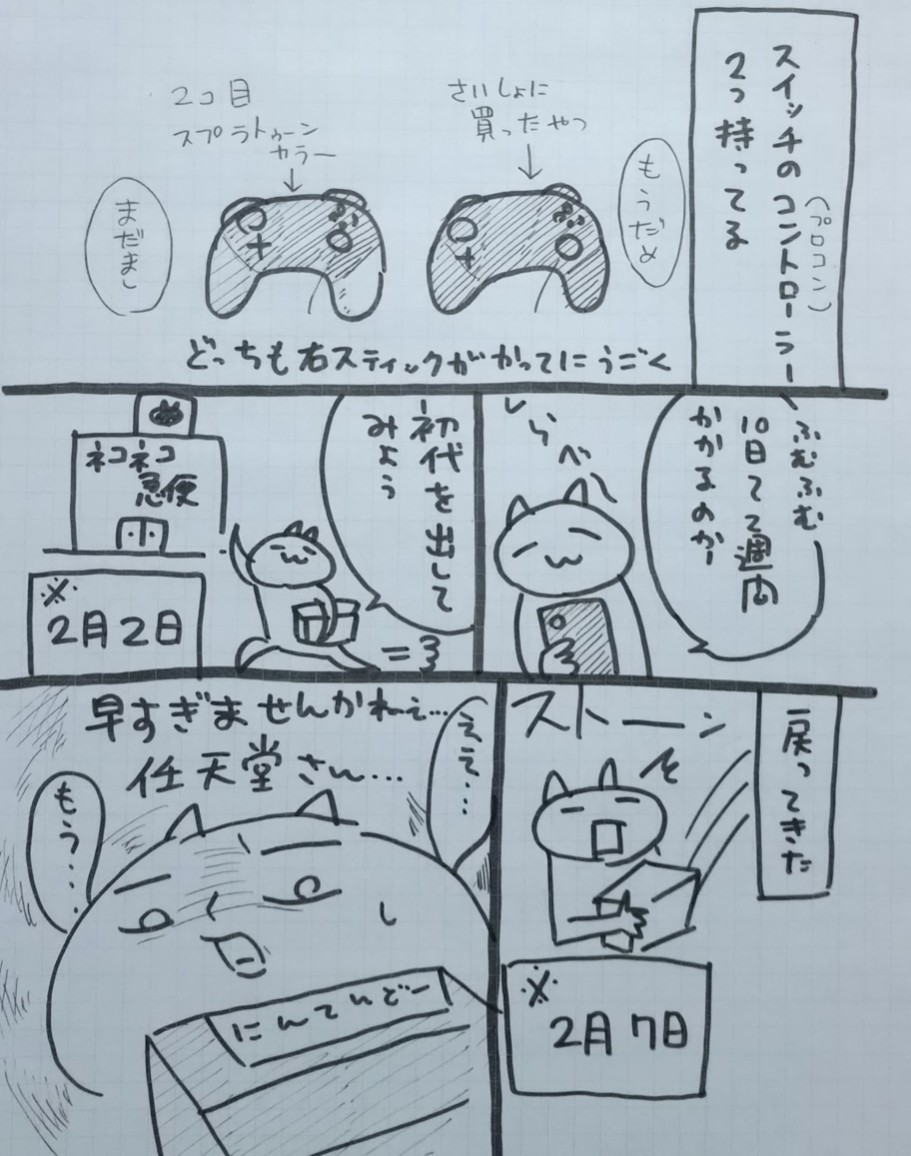 スイッチのコントローラー
(プロコン)
2つ持ってる
もうだめ
さいしょに
買ったやつ
2コ目
スプラトゥーン
カラー
まだまし
どっちも右スティックがかってにうごく
ふむふむ
10日て2週間
かかるのかー
しらべ
初代を出して
みよう
ネコネコ
急便
※
2月2日
戻ってきた
ストーン
※
2月7日
ええ…
早すぎませんかねえ…
任天堂さん…
もう…
にんてんどー